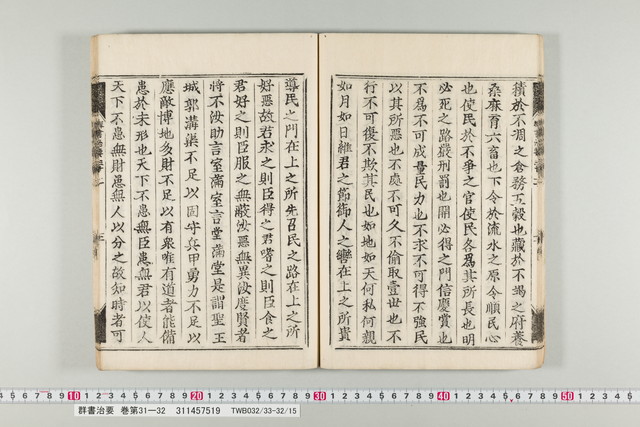 積於不涸之倉務五穀也藏於不竭之府養
桑麻育六畜也下令於流水之原令順民心
也使民於不爭之官使民各爲其所長也明
必死之路嚴刑罰也開必得之門信慶賞也
不爲不可成量民力也不求不可得不強民
以其所惡也不處不可久不偷取壹世也不
行不可復不欺其民也如地如天何私何親
如月如日維君之節御人之轡在上之所貴
導民之門在上之所先召民之路在上之所
好惡故君求之則臣得之君嗜之則臣食之
君好之則臣服之無蔽汝惡無異汝度賢者
將不汝助言室滿室言堂滿堂是謂聖王
城郭溝渠不足以固守兵甲勇力不足以
應敵博地多財不足以有衆唯有道者能備
患於未形也天下不患無臣患無君以使人
天下不患無財患無人以分之故知時者可
10 20 30 40 50
群書治要 巻第31―32 311457519 TWB032/33-32/15